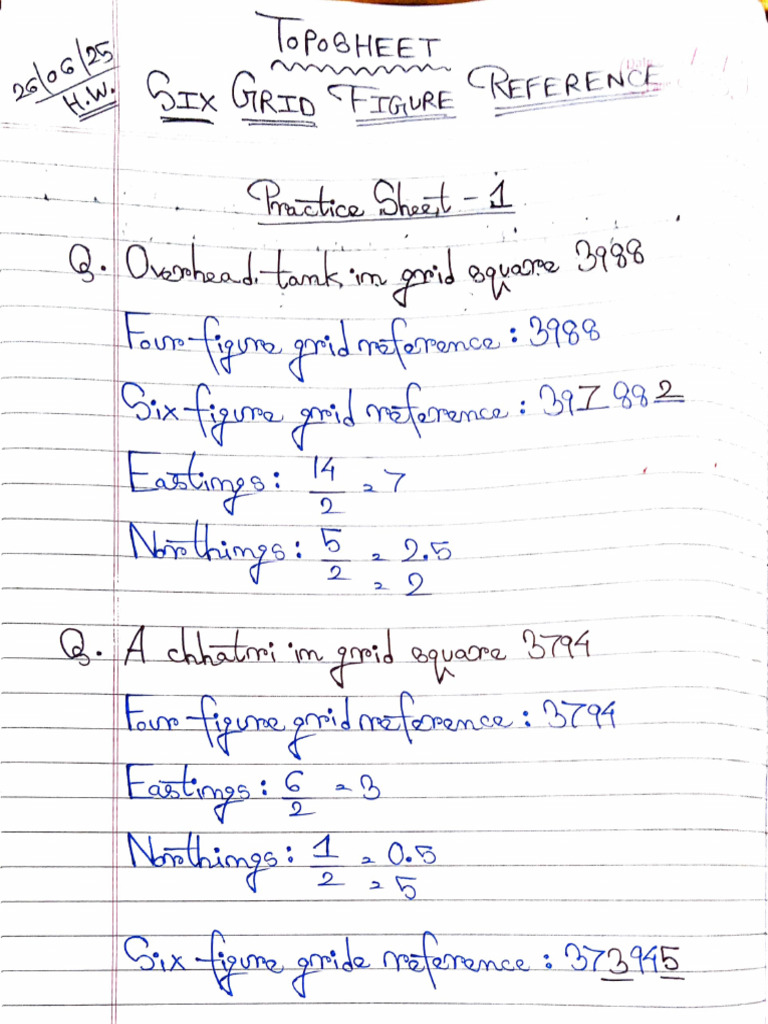 TOPOSHEET
26/06/25
H.W.
SIX GRID FIGURE REFERENCE
Practice Sheet - 1
Q. Overhead tank in grid square 3988
Four-figure grid reference : 3988
Six-figure grid reference : 397882
Eastings : 14/2 = 7
Northings : 5/2 = 2.5
= 2
Q. A chhatri in grid square 3794
Four-figure grid reference : 3794
Eastings : 6/2 = 3
Northings : 1/2 = 0.5
= 5
Six-figure gride reference : 373945